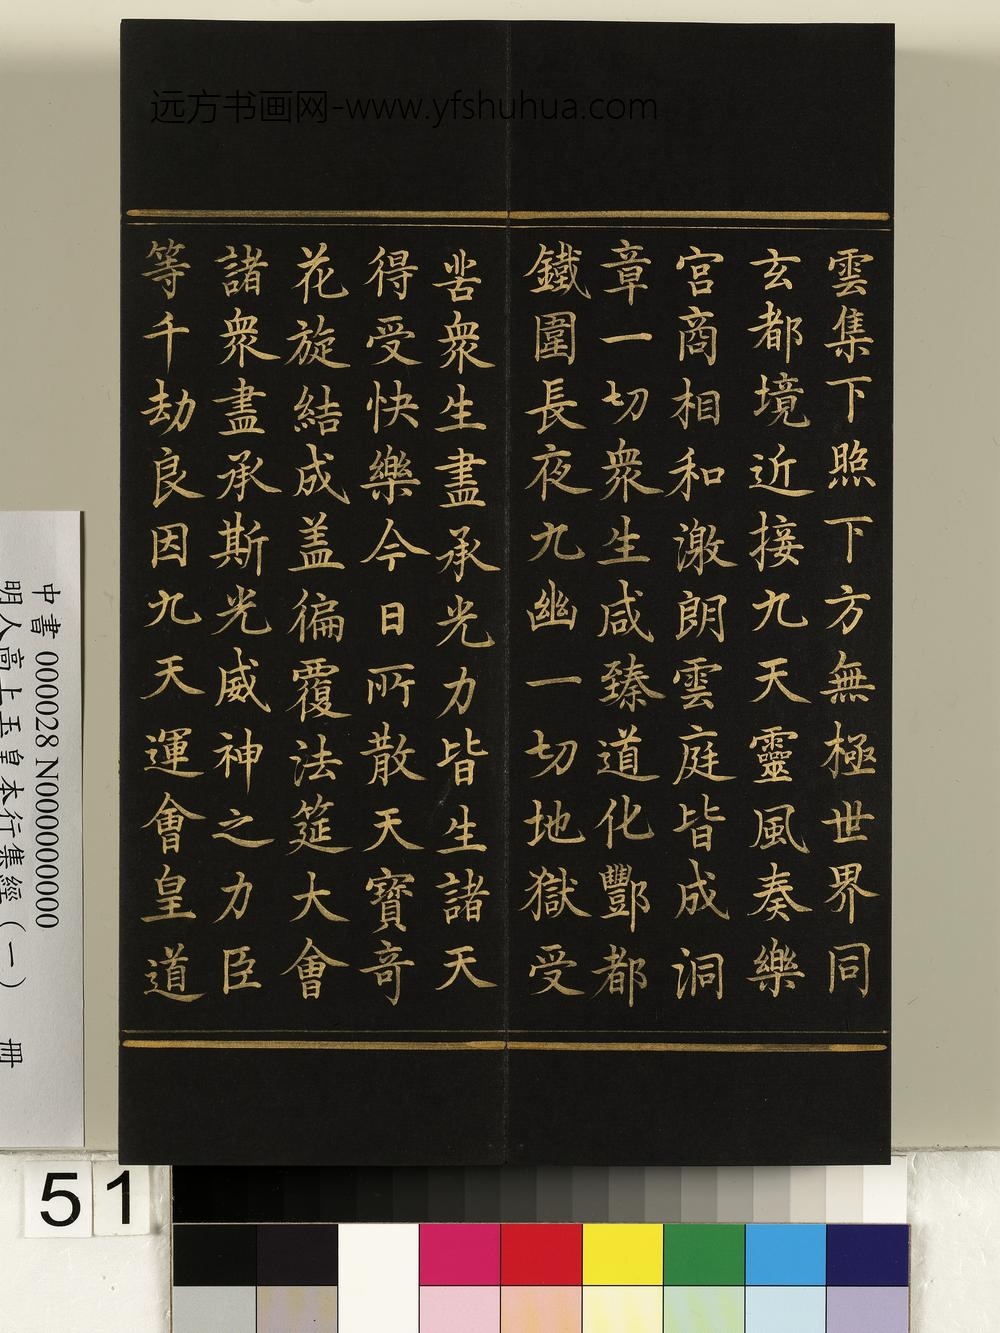 远方书画网-www.yfshuhua.com
雲集下照下方無極世界同
玄都境近接九天靈風奏樂
宮商相和激朗雲庭皆成洞
章一切衆生咸臻道化酆都
鐵圍長夜九幽一切地獄受
苦衆生盡承光力皆生諸天
得受快樂今日所散天寶奇
花旋結成盖徧覆法筵大會
諸衆盡承斯光威神之力臣
等千劫良因九天運會皇道
中書 000028 N000000000
明人高上玉皇本行集經（一） 冊
51